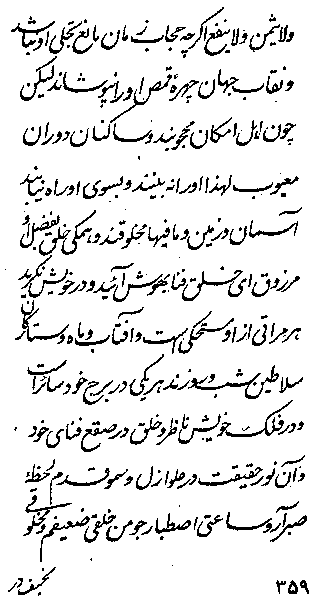 ولا یثمن ولا ینفع اگرچه حجاب زمان مانع تجلی او نباشد
و نقاب جهان چهرهٔ قمص او را نپوشاند لیکن
چون اهل امکان محجوبند و ساکنان دوران
معیوب لهذا او را نه بینند و بسوی او راه نیابند
آسمان و زمین و ما فیها مخلوقند و همگی خلق بفضل او
مرزوق ای خلق فنا بهوش آئید و در خویش نگرید
هر مراتی از او متحکی است و آفتاب و ماه و ستارگان
سلاطین شب و روزند هر یکی در برج خود سائر است
و در فلک خویش ناظر و خلق در صقع فنای خود
و آن نور حقیقت در علو ازل و سمو قدم لحظهٔ
صبر آر و ساعتی اصطبار جو من خلقی ضعیفم و مخلوقی
نحیف در
۳۵۹